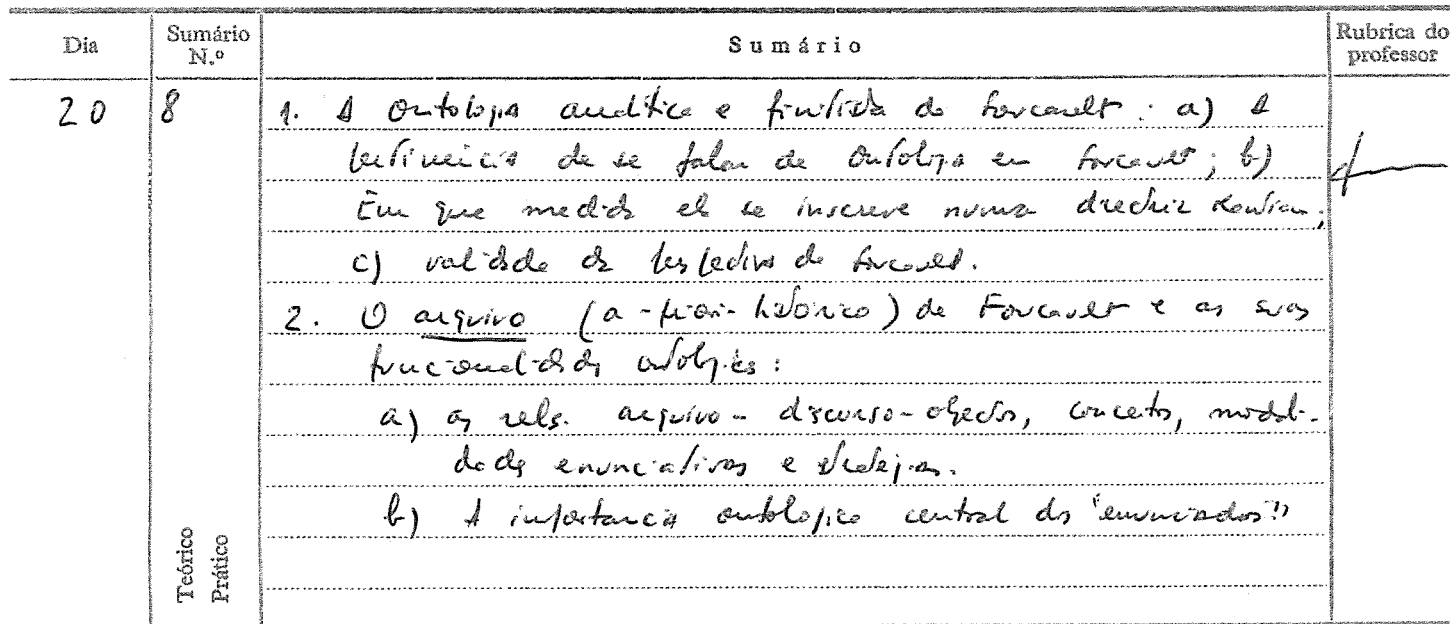 Dia
Sumário N.º
Sumário
Rubrica do professor
20
8
1. A Ontologia analítica e finitista de Foucault: a) A
pertinência de se falar de Ontologia em Foucault; b)
Em que medida ela se inscreve numa directriz kantiana;
c) validade da perspectiva de Foucault.
2. O arquivo (a-priori-histórico) de Foucault e as suas
funcionalidades ontológicas:
a) as rels. arquivo-discurso-objectos, conceitos, modali-
dades enunciativas e estratégias.
b) A importância ontológica central dos "enunciados"
Teórico
Prático